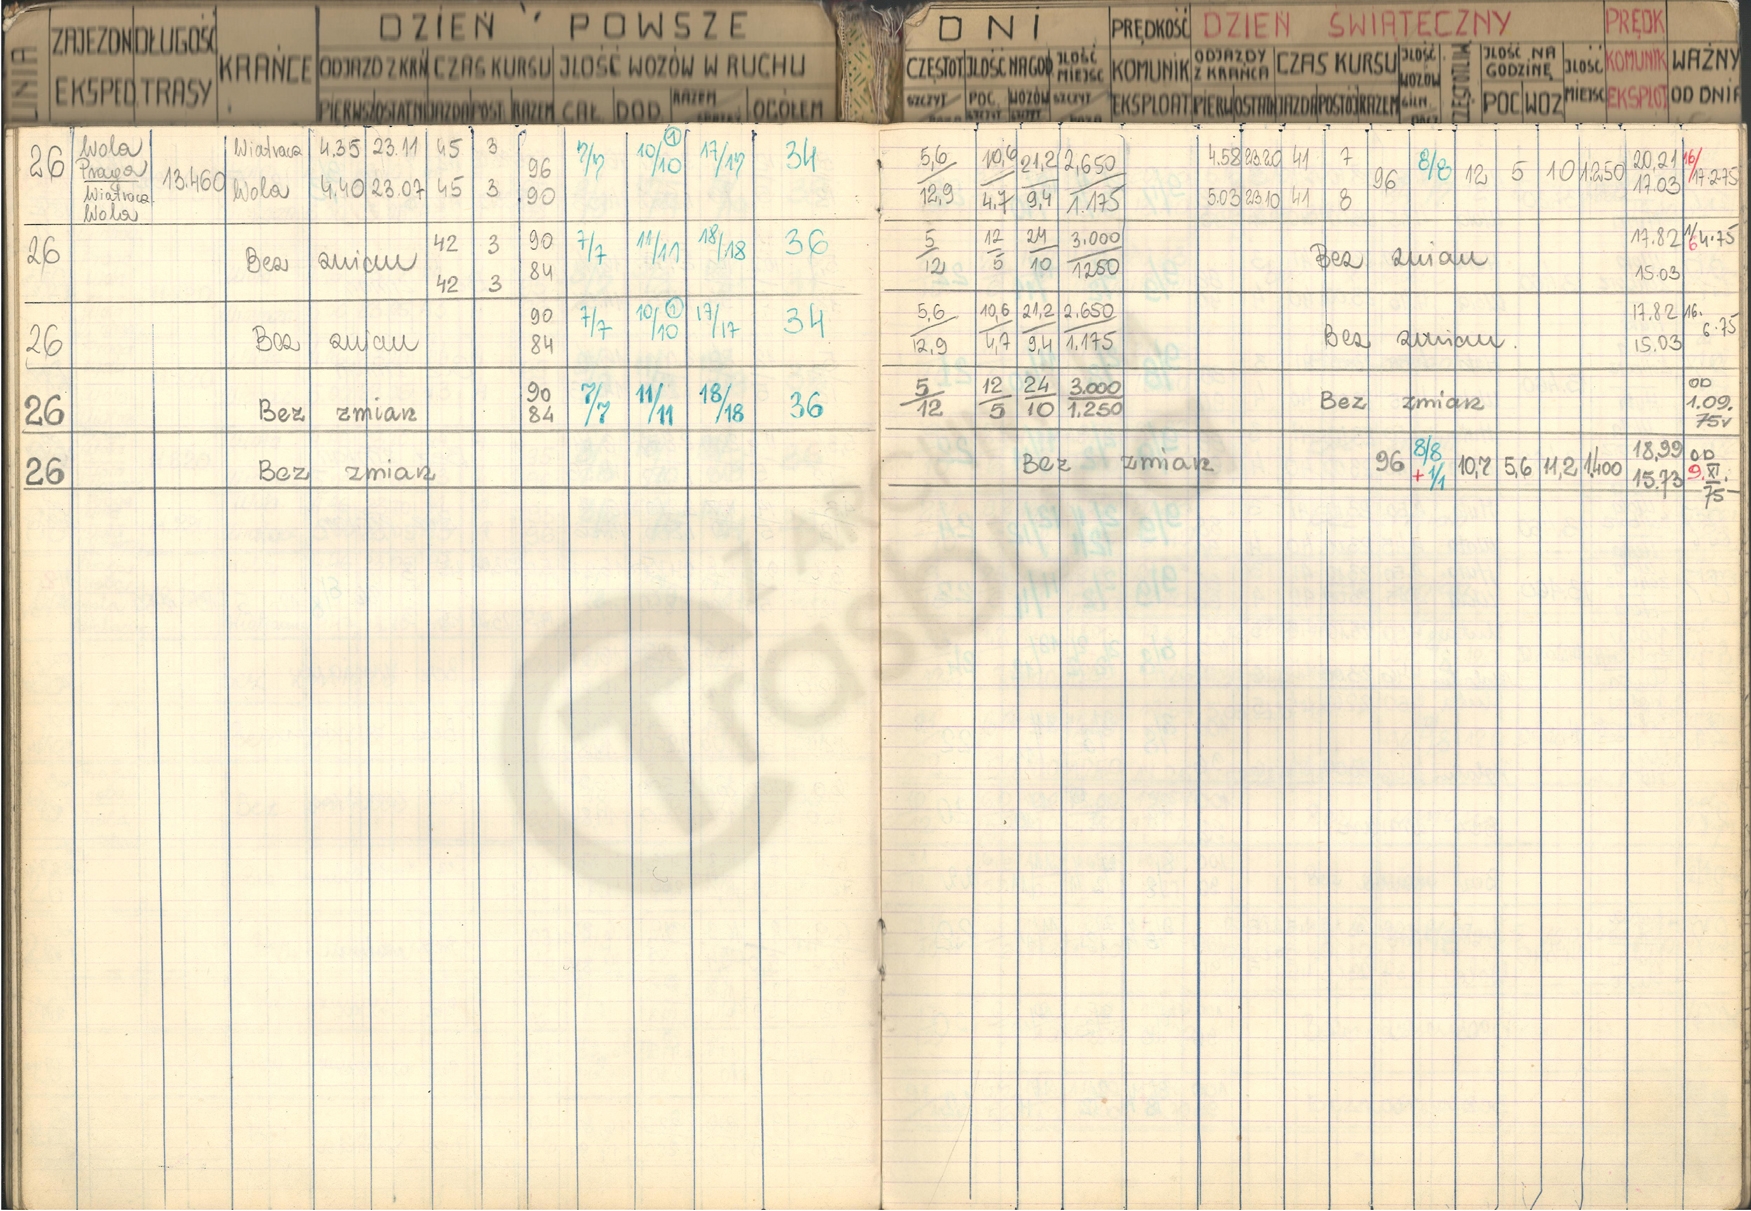 LINIA
ZAJEZDN
EKSPED
DŁUGOŚĆ
TRASY
KRAŃCE
DZIEŃ POWSZE
ODJAZD Z KRAŃ CZAS KURSU JLOŚĆ WOZÓW W RUCHU
PIERWSZ OSTATNI JAZDA POST. RAZEM CAŁ. DOD. RAZEM OGÓŁEM
DNI PRĘDKOŚĆ DZIEŃ ŚWIĄTECZNY PRĘDK
CZĘSTOT JLOŚĆ NA GOD JLOŚĆ MIEJSC KOMUNIK ODJAZDY Z KRAŃCA CZAS KURSU JLOŚĆ WOZÓW JLOŚĆ NA GODZINĘ JLOŚĆ KOMUNIK WAŻNY
SZCZYT POC. WOZÓW SZCZYT EKSPLOAT PIERW OSTATN JAZDA POSTÓJ RAZEM POC WOZ MIEJSC EKSPLOT OD DNIA
26 Wola Praga Wiatracz. Wola 13.460
Wiatracz 4.35 23.11 45 3
Wola 4.40 23.07 45 3
96 90 7/7 10/10 1 17/17 34
5,6/12,9 10,6/4,7 21,2/9,4 2,650/1.175
4.58 23.20 41 7
5.03 23.10 41 8
96 8/8 12 5 10 1.250 20,21 17.03 16/17.2.75
26 Bez zmian 42 3 42 3 90 84 7/7 11/11 18/18 36
5/12 12/5 24/10 3.000/1250 Bez zmian 17.82 15.03 1/6 4.75
26 Bez zmian 90 84 7/7 10/10 1 17/17 34
5,6/12,9 10,6/4,7 21,2/9,4 2.650/1.175 Bez zmian. 17.82 15.03 16.6.75
26 Bez zmian 90 84 7/7 11/11 18/18 36
5/12 12/5 24/10 3.000/1.250 Bez zmian OD 1.09. 75r
26 Bez zmian
Bez zmian 96 8/8 + 1/1 10,7 5,6 11,2 1.400 18,99 15.73 OD 9.XI. 75
Z ARCHIWUM
Trasbusa